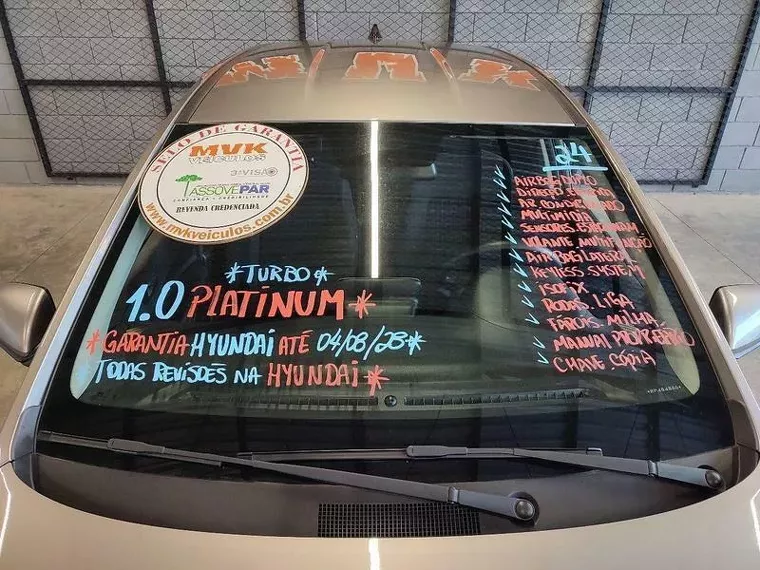 SELO DE GARANTIA
MVK
VEÍCULOS
3ªVISÃO
ASSOVEPAR
CONFIANÇA E CREDIBILIDADE
REVENDA CREDENCIADA
www.mvkveiculos.com.br
*TURBO*
1.0 PLATINUM*
*GARANTIA HYUNDAI ATÉ 04/08/28*
*TODAS REVISÕES NA HYUNDAI*
24
AIRBAG DUPLO
AR CONDICIONADO
MULTIMÍDIA
SENSORES
VOLANTE MULTIFUNÇÃO
AIR BAG LATERAL
KEYLESS SYSTEM
ISOFIX
RODAS LIGA
FÁROIS MILHA
MANUAL PROPRIETÁRIO
CHAVE CÓPIA